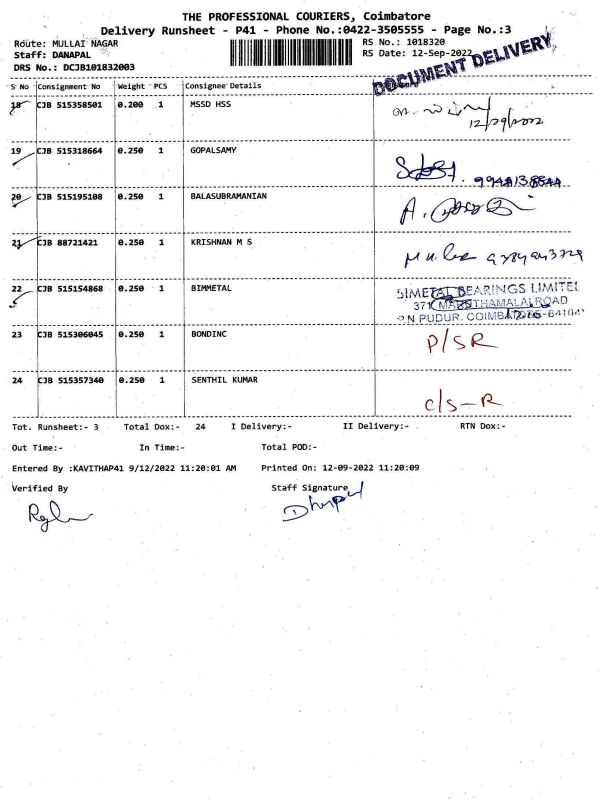 THE PROFESSIONAL COURIERS, Coimbatore
Delivery Runsheet - P41 - Phone No.:0422-3505555 - Page No.:3
Route: MULLAI NAGAR RS No.: 1018320
Staff: DANAPAL RS Date: 12-Sep-2022
DRS No.: DCJB101832003
DOCUMENT DELIVERY
S No Consignment No Weight PCS Consignee Details
18 CJB 515358501 0.200 1 MSSD HSS
12/09/2022
19 CJB 515318664 0.250 1 GOPALSAMY
20 CJB 515195108 0.250 1 BALASUBRAMANIAN
21 CJB 88721421 0.250 1 KRISHNAN M S
22 CJB 515154868 0.250 1 BIMMETAL
BIMETAL BEARINGS LIMITED
371 MARUTHAMALAI ROAD
P N PUDUR. COIMBATORE-641041
23 CJB 515306045 0.250 1 BONDINC
P/SR
24 CJB 515357340 0.250 1 SENTHIL KUMAR
C/S-R
Tot. Runsheet:- 3 Total Dox:- 24 I Delivery:- II Delivery:- RTN Dox:-
Out Time:- In Time:- Total POD:-
Entered By :KAVITHAP41 9/12/2022 11:20:01 AM Printed On: 12-09-2022 11:20:09
Verified By Staff Signature